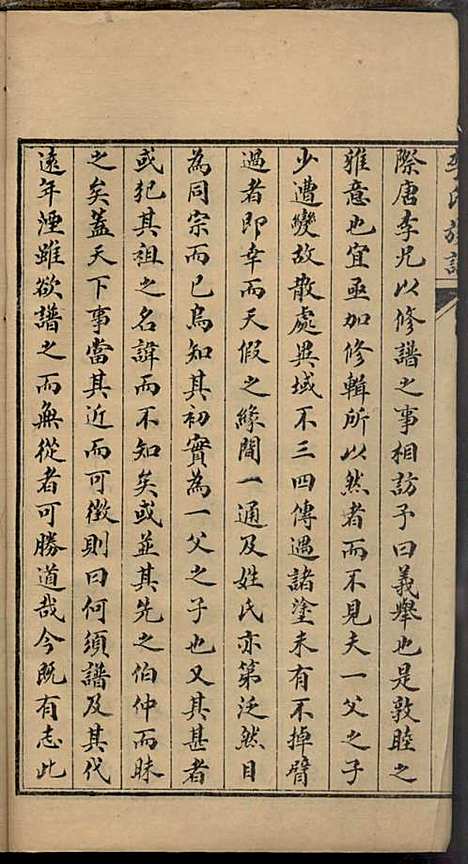 李氏族譜
際唐李兄以修譜之事相訪予曰義舉也是敦睦之
雅意也宜亟加修輯所以然者而不見夫一父之子
少遭變故散處異域不三四傳遇諸塗未有不掉臂
過者即幸而天假之緣間一通及姓氏亦第泛然目
為同宗而已烏知其初實為一父之子也又其甚者
或犯其祖之名諱而不知矣或並其先之伯仲而昧
之矣蓋天下事當其近而可徵則曰何須譜及其代
遠年湮雖欲譜之而無從者可勝道哉今既有志此